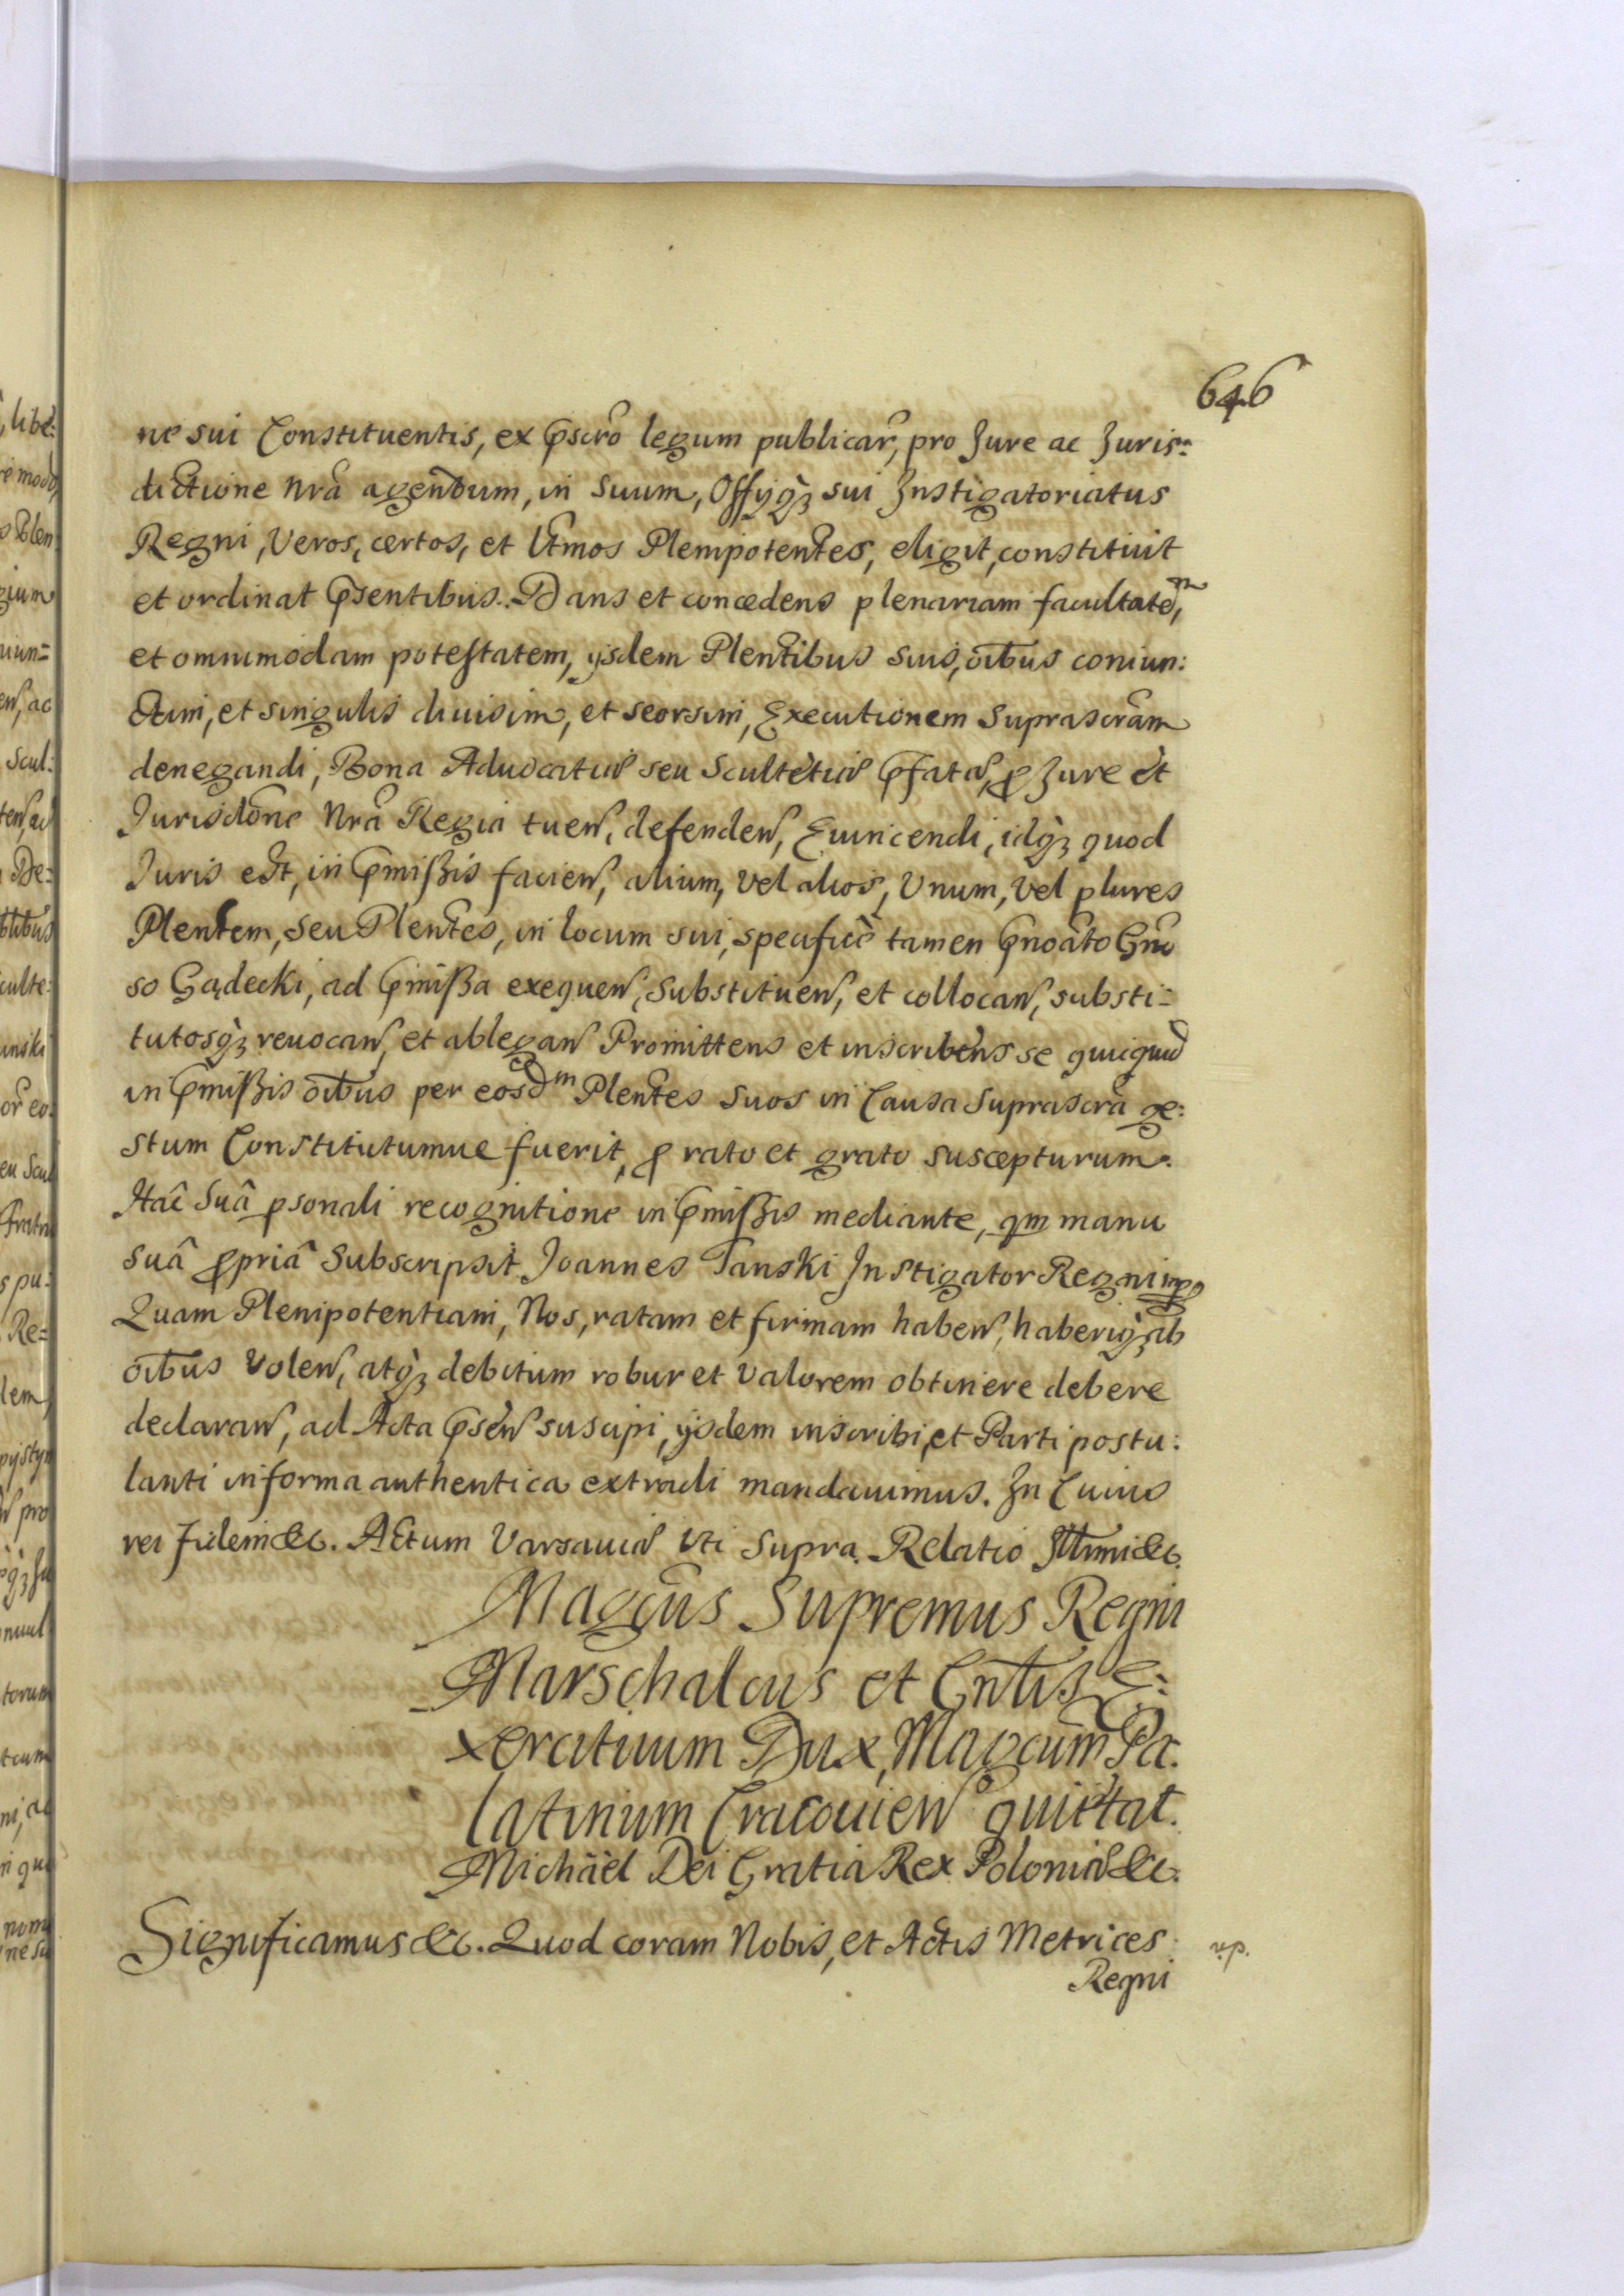 646
ne sui Constituentis, ex p̃scr̃o legum publicar̃, pro Jure ac Juris=
dictione nr̃a agendum, in Suum, Offyq̀ȝ sui Instigatoriatus
Regni, Veros, certos, et Ltm̃os Plenipotentes, eligit, constituit
et ordinat p̃sentibus. Dans et concedens plenariam facultatem,
et omnimodam potestatem, ysdem Plent̃ibus suis, oĩbus coniun:
ctim, et singulis diuisim, et seorsim, Executionem suprascr̃am
denegandi, Bona Aduocatiæ seu Scultetiæ p̃fatæ, p Jure et
Jurisdõne Nr̃a Regia tueñ, defendeñ, Euincendi, idq̀ȝ quod
Juris est, in p̃mißis facieñ, alium, vel alios, Vnum, Vel plures
Plent̃em, seu Plent̃es, in locum sui, specificè tamen p̃noãto Gñ̃o
so Gądecki, ad p̃mißa exequeñ, Substitueñ, et collocañ, substi=
tutosq̀ȝ reuocañ, et ablegañ Promittens et inscribens se quicquid
in p̃mißis oĩbus per eosdm Plent̃es Suos in Causa Suprascr̃a ge:
stum Constitutumue fuerit, p rato et grato suscepturum.
Hac Suâ psonali recognitione in p̃mißis mediante, qm manu
suâ ppriâ Subscripsit Joannes Tanski Instigator Regni mp
Quam Plenipotentiam, Nos, ratam et firmam habeñ, haberiq̀ȝ ab
oĩbus Voleñ, atq̀ȝ debitum robur et valorem obtinere debere
declarañ, ad Acta p̃señ suscipi, ysdem inscribi, et Parti postu:
lanti in forma authentica extradi mandauimus. In Cuius
rei fidem &c. Actum Varsauiæ Vti Supra. Relatio Illmi &c.
Magcũs Supremus Regni
Marschalcus et Gnl̃is E:
xercituum Dux, Magcũm Pa:
latinum Cracouieñ quittat.
Michäel Dei Gratia Rex Poloniæ &c.
Significamus &c. Quod coram Nobis, et Actis Metrices
Regni